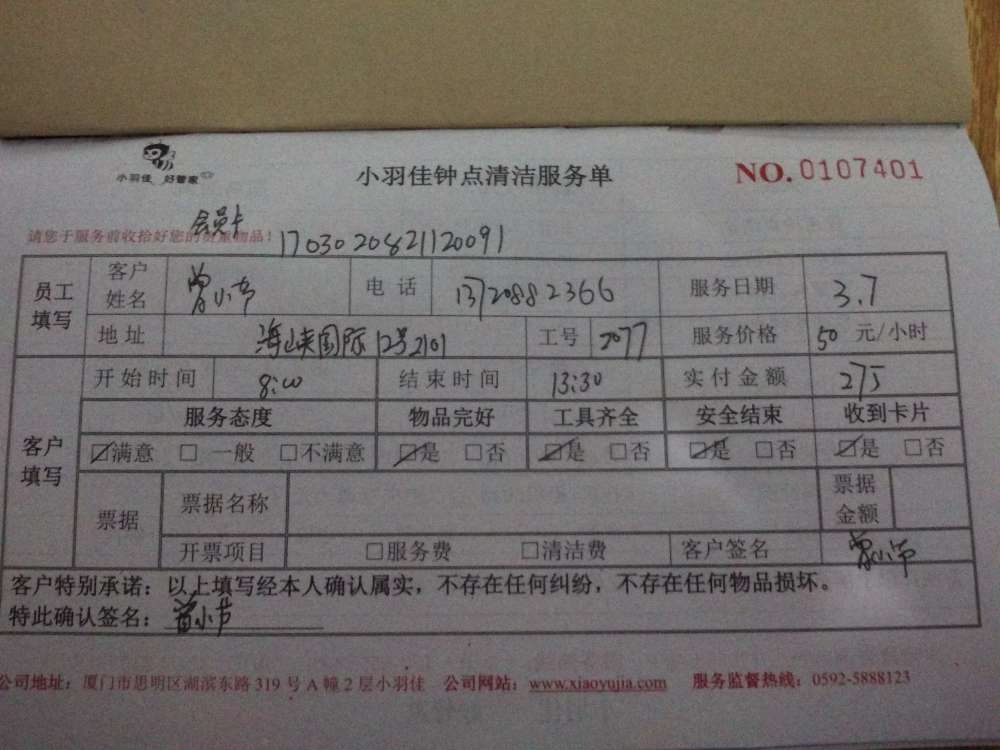 小羽佳 好管家
小羽佳钟点清洁服务单
NO. 0107401
会员卡
请您于服务前收拾好您的贵重物品！ 17030 20821120091
员工填写 客户姓名 曾小节 电话 13720882366 服务日期 3.7
地址 海峡国际12号2101 工号 2077 服务价格 50 元/小时
客户填写 开始时间 8:00 结束时间 13:30 实付金额 275
服务态度 物品完好 工具齐全 安全结束 收到卡片
☑满意 □ 一般 □不满意 ☑是 □否 ☑是 □否 ☑是 □否 ☑是 □否
票据 票据名称 票据金额
开票项目 □服务费 □清洁费 客户签名 曾小节
客户特别承诺：以上填写经本人确认属实，不存在任何纠纷，不存在任何物品损坏。
特此确认签名：曾小节
公司地址：厦门市思明区湖滨东路 319 号 A 幢 2 层小羽佳 公司网站：www.xiaoyujia.com 服务监督热线：0592-5888123